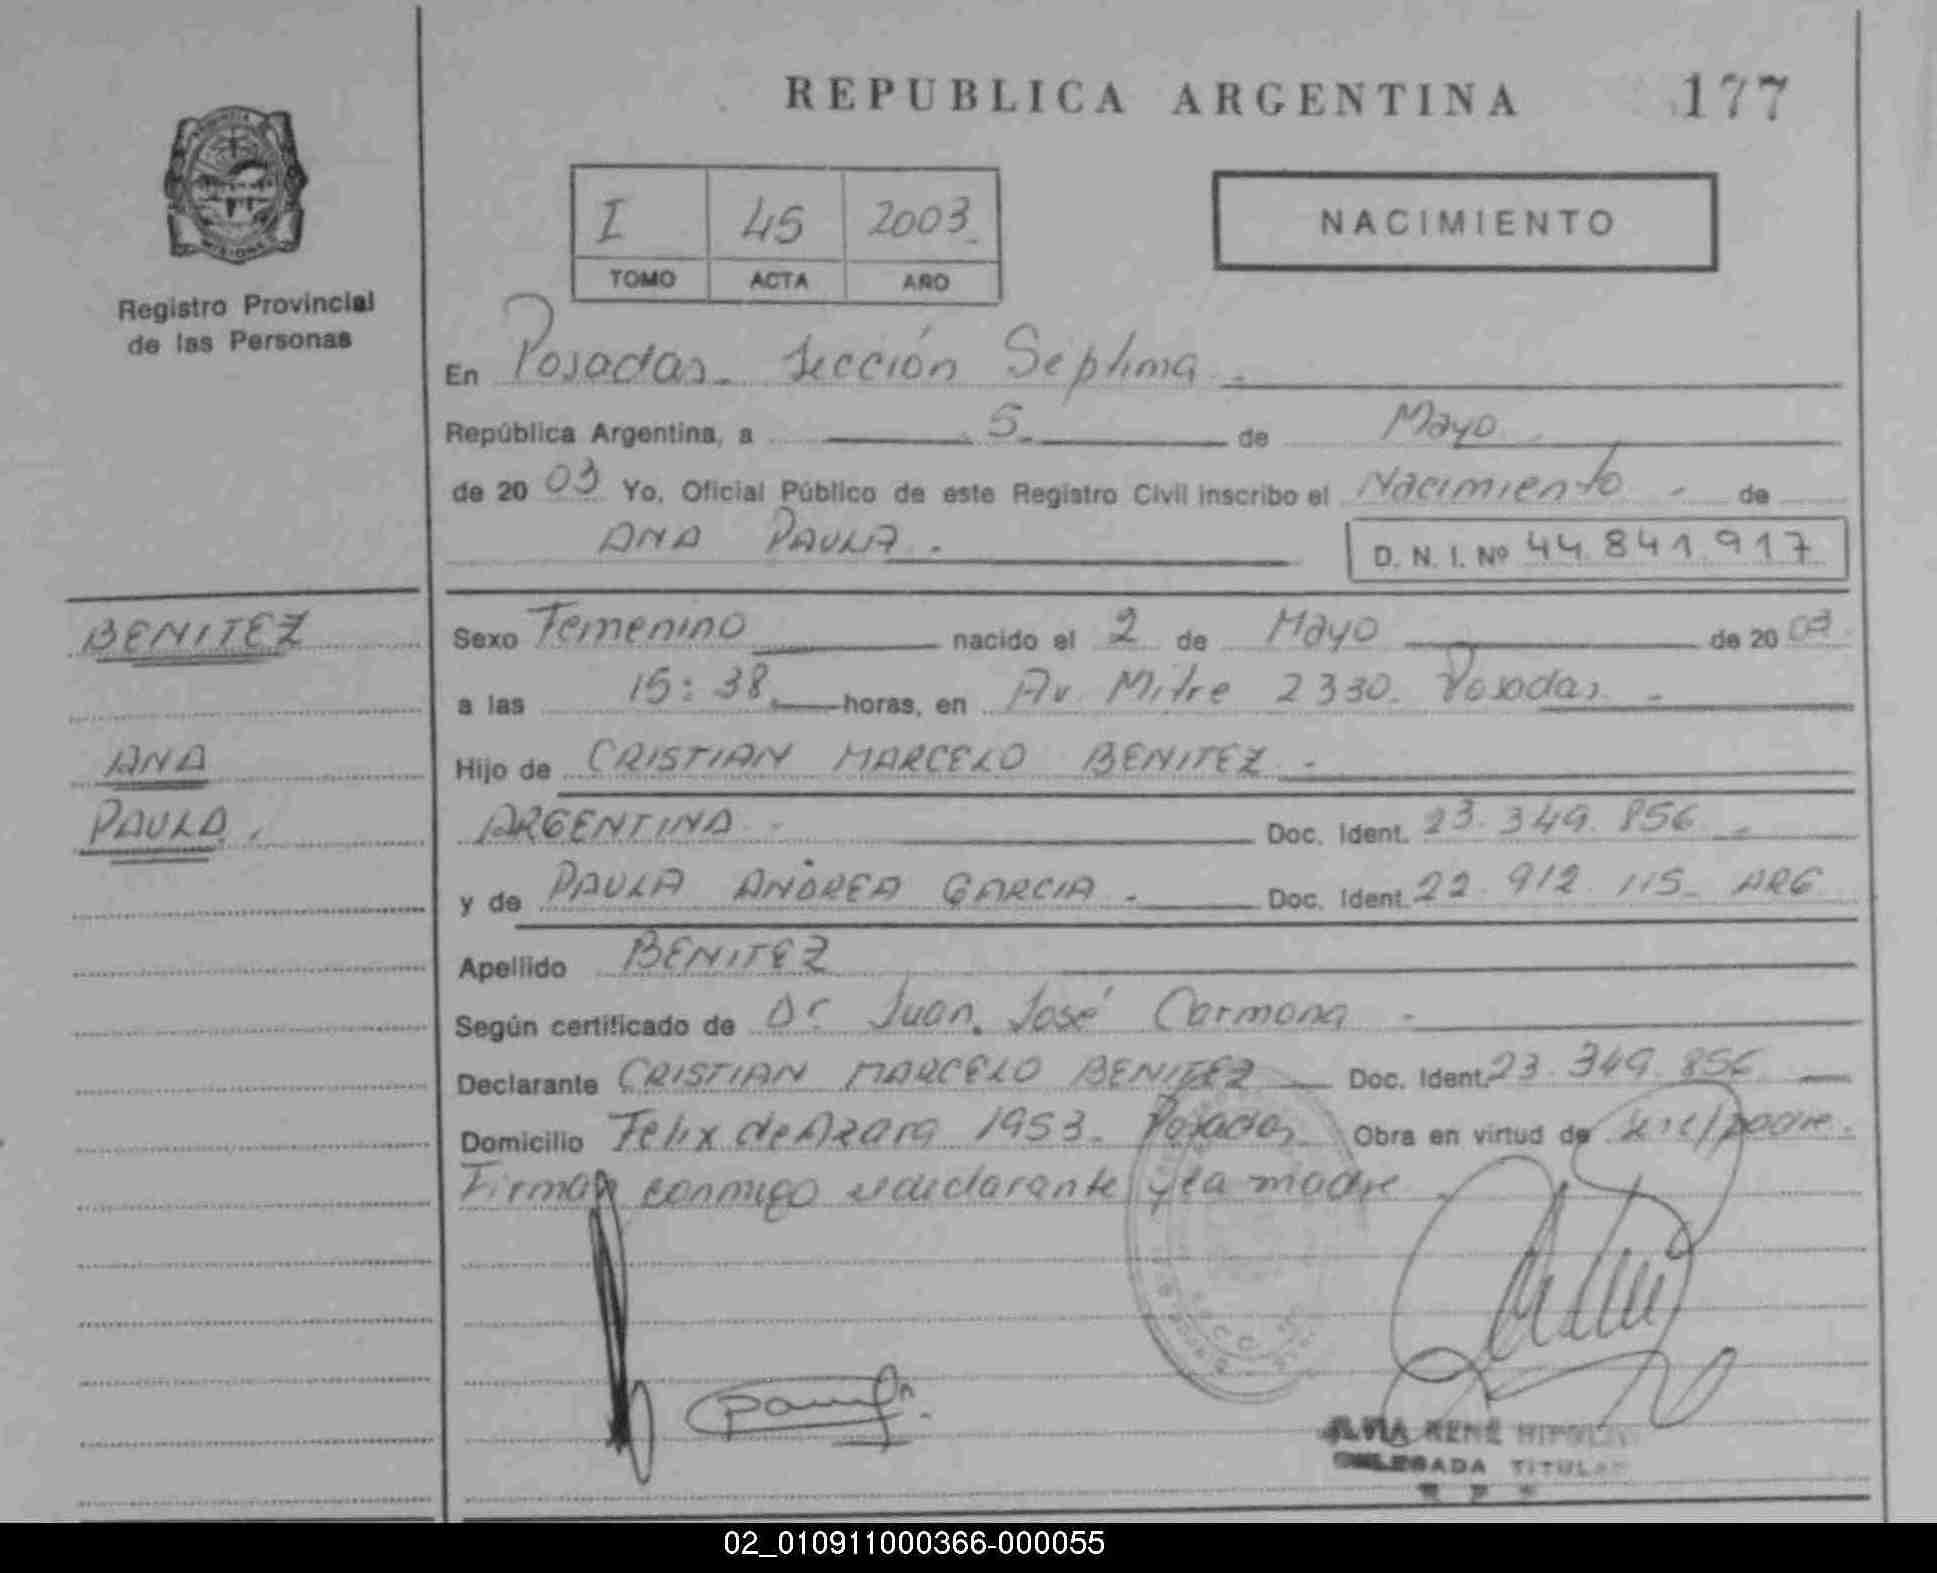 REPUBLICA ARGENTINA 177
I 45 2003
TOMO ACTA AÑO
NACIMIENTO
Registro Provincial
de las Personas
En Posadas. Sección Septima
República Argentina, a 5 de Mayo
de 20 03 Yo, Oficial Público de este Registro Civil inscribo el Nacimiento de
ANA PAULA
D. N. I. Nº 44.841.917
BENITEZ
ANA
PAULA.
Sexo Femenino nacido el 2 de Mayo de 20 03
a las 15:38 horas, en Av. Mitre 2330. Posadas
Hijo de CRISTIAN MARCELO BENITEZ
ARGENTINA Doc. Ident. 23.349.856
y de PAULA ANDREA GARCIA Doc. Ident. 22.912.115 ARG
Apellido BENITEZ
Según certificado de Dr Juan José Carmona
Declarante CRISTIAN MARCELO BENITEZ Doc. Ident. 23.349.856
Domicilio Felix de Azara 1953. Posadas Obra en virtud de ser el padre.
Firman conmigo el declarante y la madre
RENÉ
DELEGADA TITULAR
02_010911000366-000055